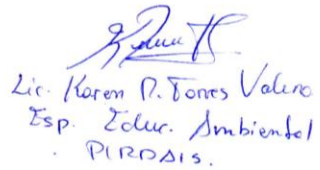 Lic. Karen P. Torres Valero
Esp. Educ. Ambiental
PIRDAIS.